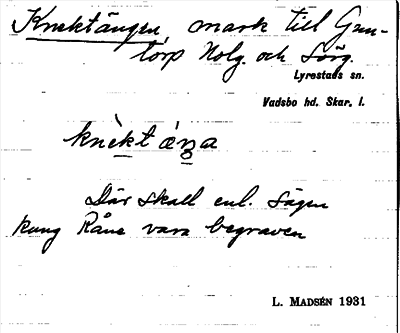 Knektängen, mark till Grun-
torp Nolg. och Sörg.
Lyrestads sn.
Vadsbo hd. Skar. l.
knèkt áŋa
Där skall enl. sägen
kung Råne vara begraven
L. MADSÉN 1931